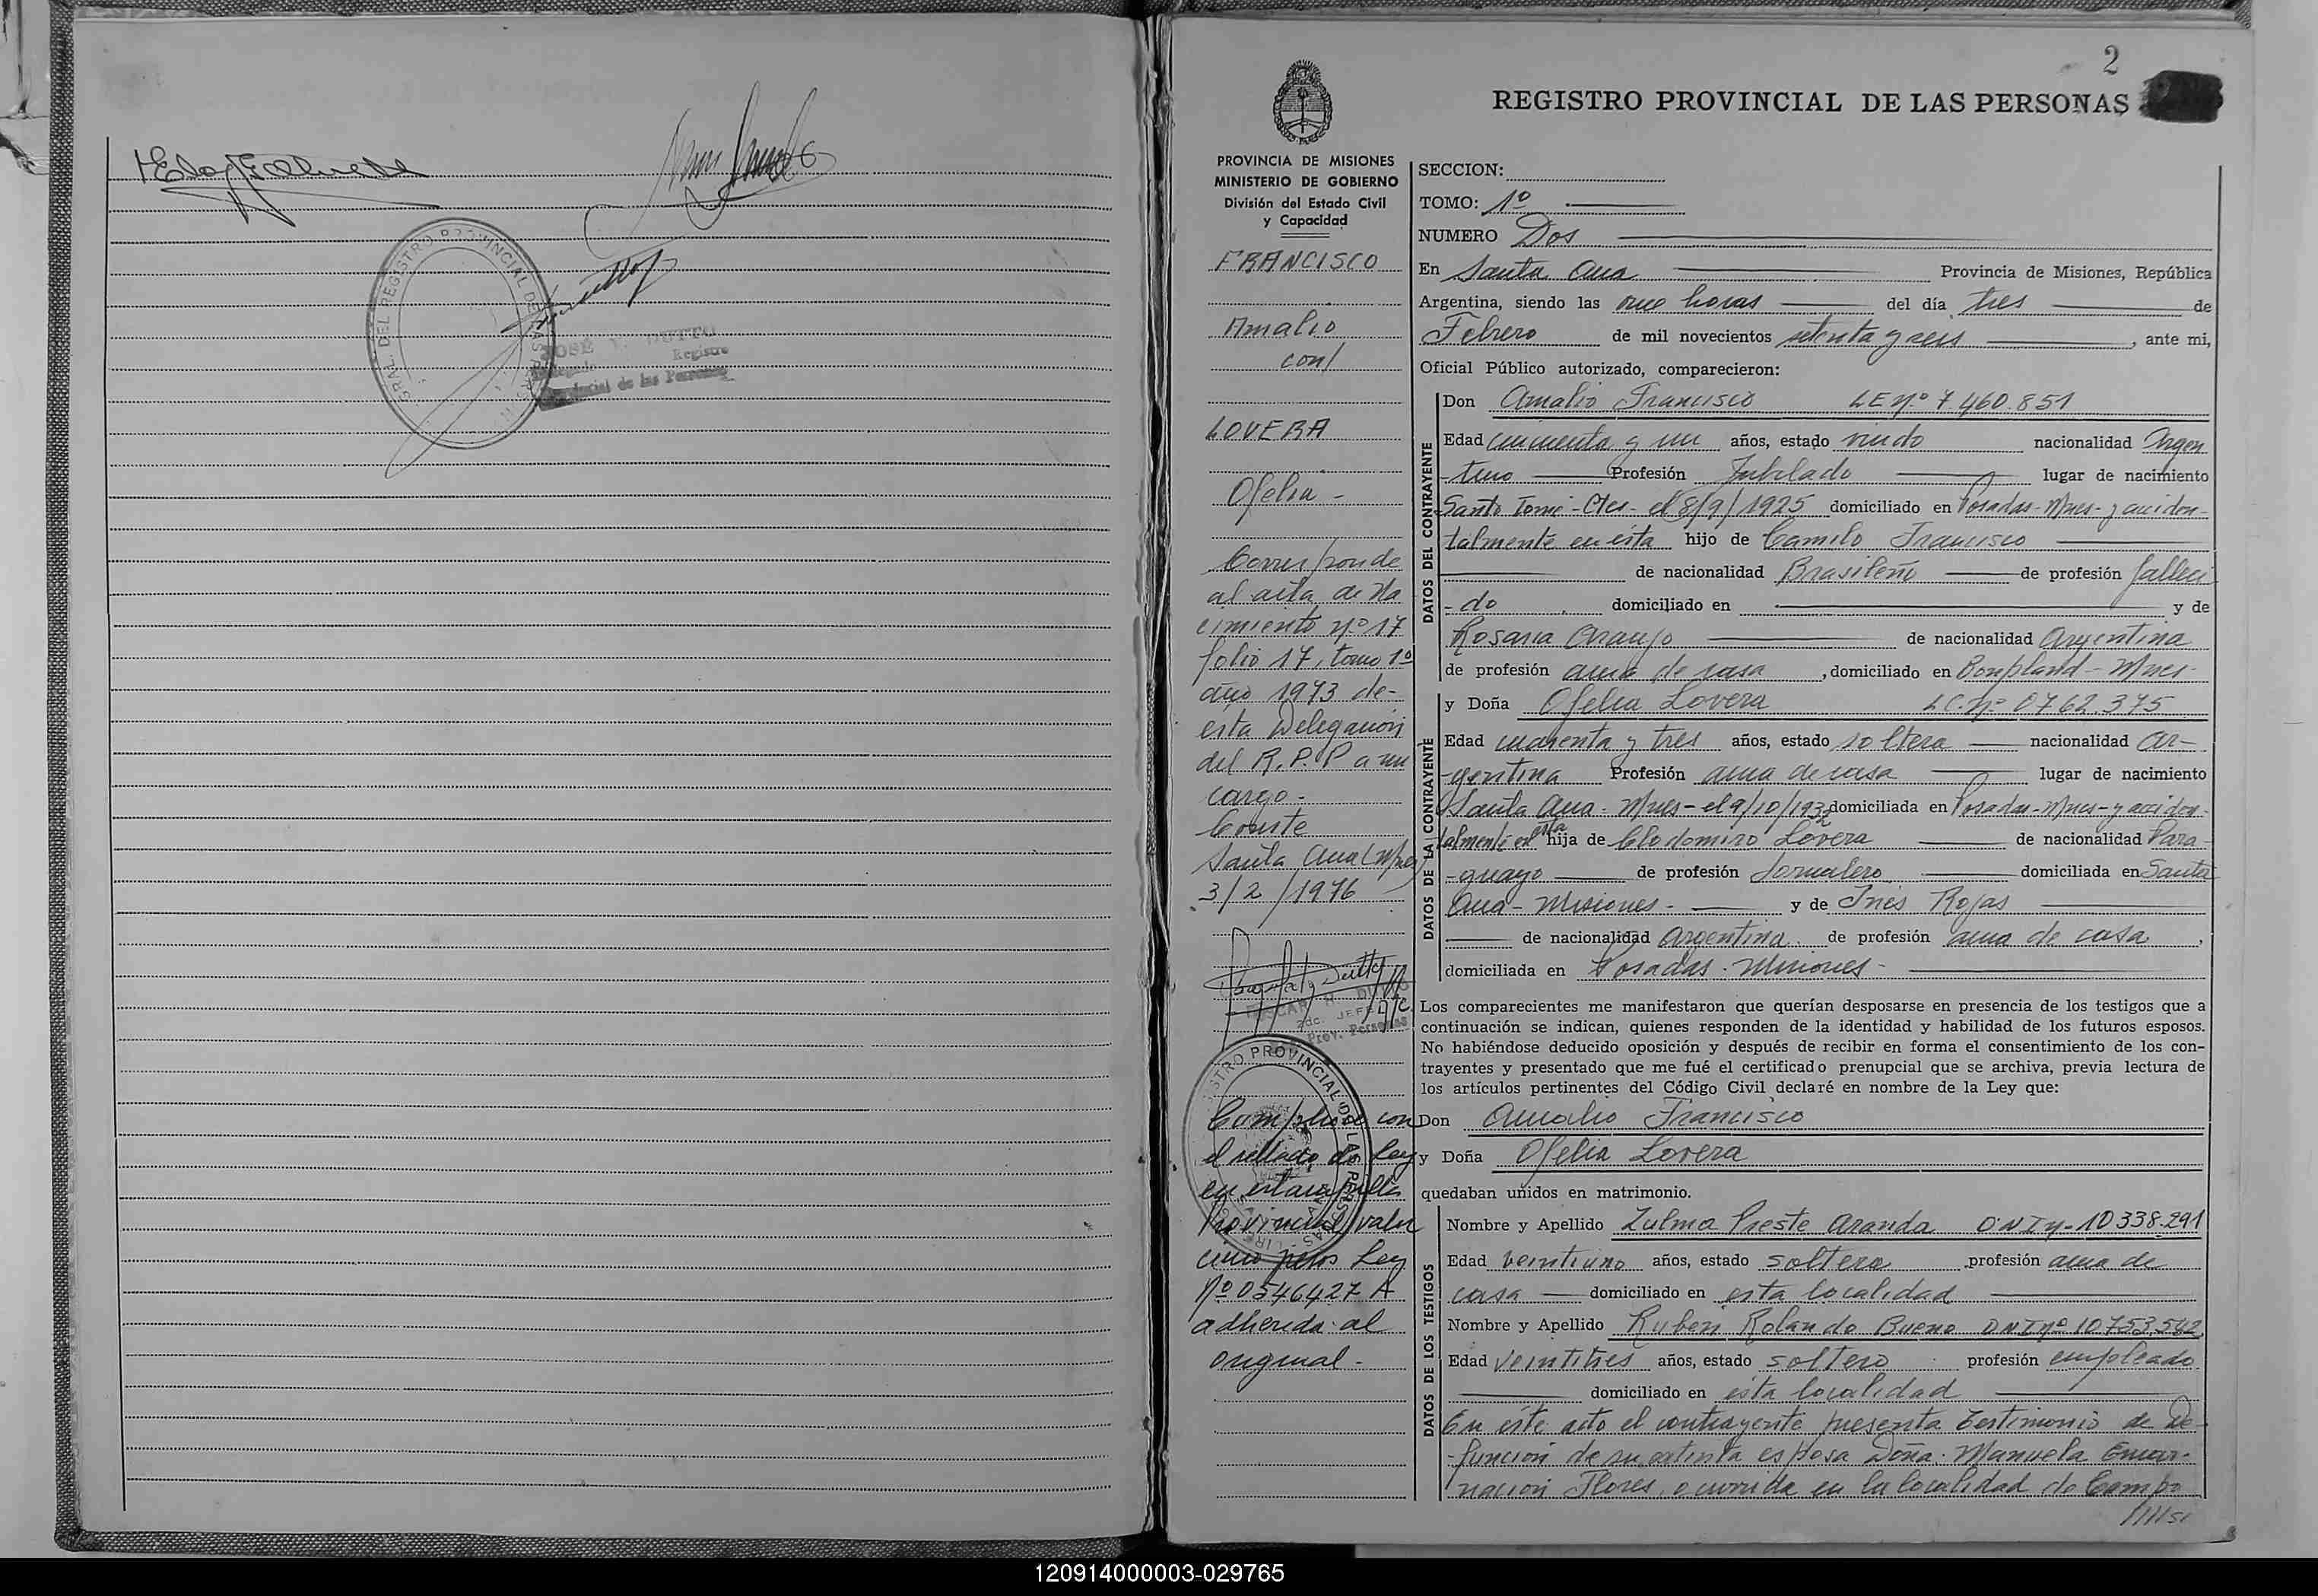 GRAL. DEL REGISTRO PROVINCIAL DE LAS
JOSE
Registro
Provincial de las Personas
2
REGISTRO PROVINCIAL DE LAS PERSONAS
PROVINCIA DE MISIONES
MINISTERIO DE GOBIERNO
División del Estado Civil
y Capacidad
FRANCISCO
Amalio
con/
LOVERA
Ofelia -
Corresponde
al acta de Na
cimiento nº 17
folio 17, tomo 1º
año 1973 de-
esta Delegación
del R.P.P a mi
cargo -
Conste
Santa Ana (Mnes)
3/2/1976
Prov. Personas
REGISTRO PROVINCIAL DE LAS PERSONAS
Cumplióse con
el sellado de Ley
en estampilla
Provincial valor
cinco pesos Ley
Nº 0546427 A
adherida al
original -
SECCION:
TOMO: 1º
NUMERO Dos
En Santa Ana Provincia de Misiones, República
Argentina, siendo las once horas del día tres de
Febrero de mil novecientos setenta y seis, ante mi,
Oficial Público autorizado, comparecieron:
DATOS DEL CONTRAYENTE
Don Amalio Francisco LE Nº 7.460.851
Edad cincuenta y un años, estado viudo nacionalidad Argen
tino Profesión Jubilado lugar de nacimiento
Santo Tomé - Ctes - el 8/9/1925 domiciliado en Posadas - Mnes - y acciden-
talmente en ésta hijo de Camilo Francisco
de nacionalidad Brasileño de profesión falleci
- do domiciliado en y de
Rosaria Araujo de nacionalidad Argentina
de profesión ama de casa, domiciliado en Bonpland - Mnes -
DATOS DE LA CONTRAYENTE
y Doña Ofelia Lovera LC. Nº 0762.375
Edad cuarenta y tres años, estado soltera nacionalidad ar-
-gentina Profesión ama de casa lugar de nacimiento
Santa Ana - Mnes - el 9/10/1932 domiciliada en Posadas - Mnes - y acciden-
talmente en esta hija de Clodomiro Lovera de nacionalidad Para
-guayo de profesión Jornalero domiciliada en Santa
Ana - Misiones - y de Inés Rojas
de nacionalidad Argentina. de profesión ama de casa,
domiciliada en Posadas - Misiones -
Los comparecientes me manifestaron que querían desposarse en presencia de los testigos que a
continuación se indican, quienes responden de la identidad y habilidad de los futuros esposos.
No habiéndose deducido oposición y después de recibir en forma el consentimiento de los con-
trayentes y presentado que me fué el certificado prenupcial que se archiva, previa lectura de
los artículos pertinentes del Código Civil declaré en nombre de la Ley que:
Don Amalio Francisco
y Doña Ofelia Lovera
quedaban unidos en matrimonio.
DATOS DE LOS TESTIGOS
Nombre y Apellido Zulma Preste Aranda DNI Nº 10.338.291
Edad veintiuno años, estado soltera profesión ama de
casa domiciliado en esta localidad
Nombre y Apellido Ruben Rolando Bueno DNI Nº 10.753.582
Edad veintitres años, estado soltero profesión empleado
domiciliado en ésta localidad
En éste acto el contrayente presenta testimonio de De-
-función de su extinta esposa Doña Manuela Encar-
nación Flores, ocurrida en la localidad de Campo
120914000003-029765